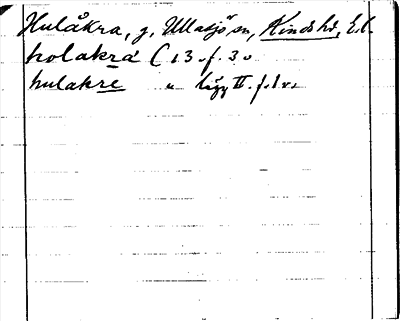 Hulåkra, g, Ullasjö sn, Kinds hd, E.l.
holakra (13.f.3v
hulakre " lägg II.f.1v.